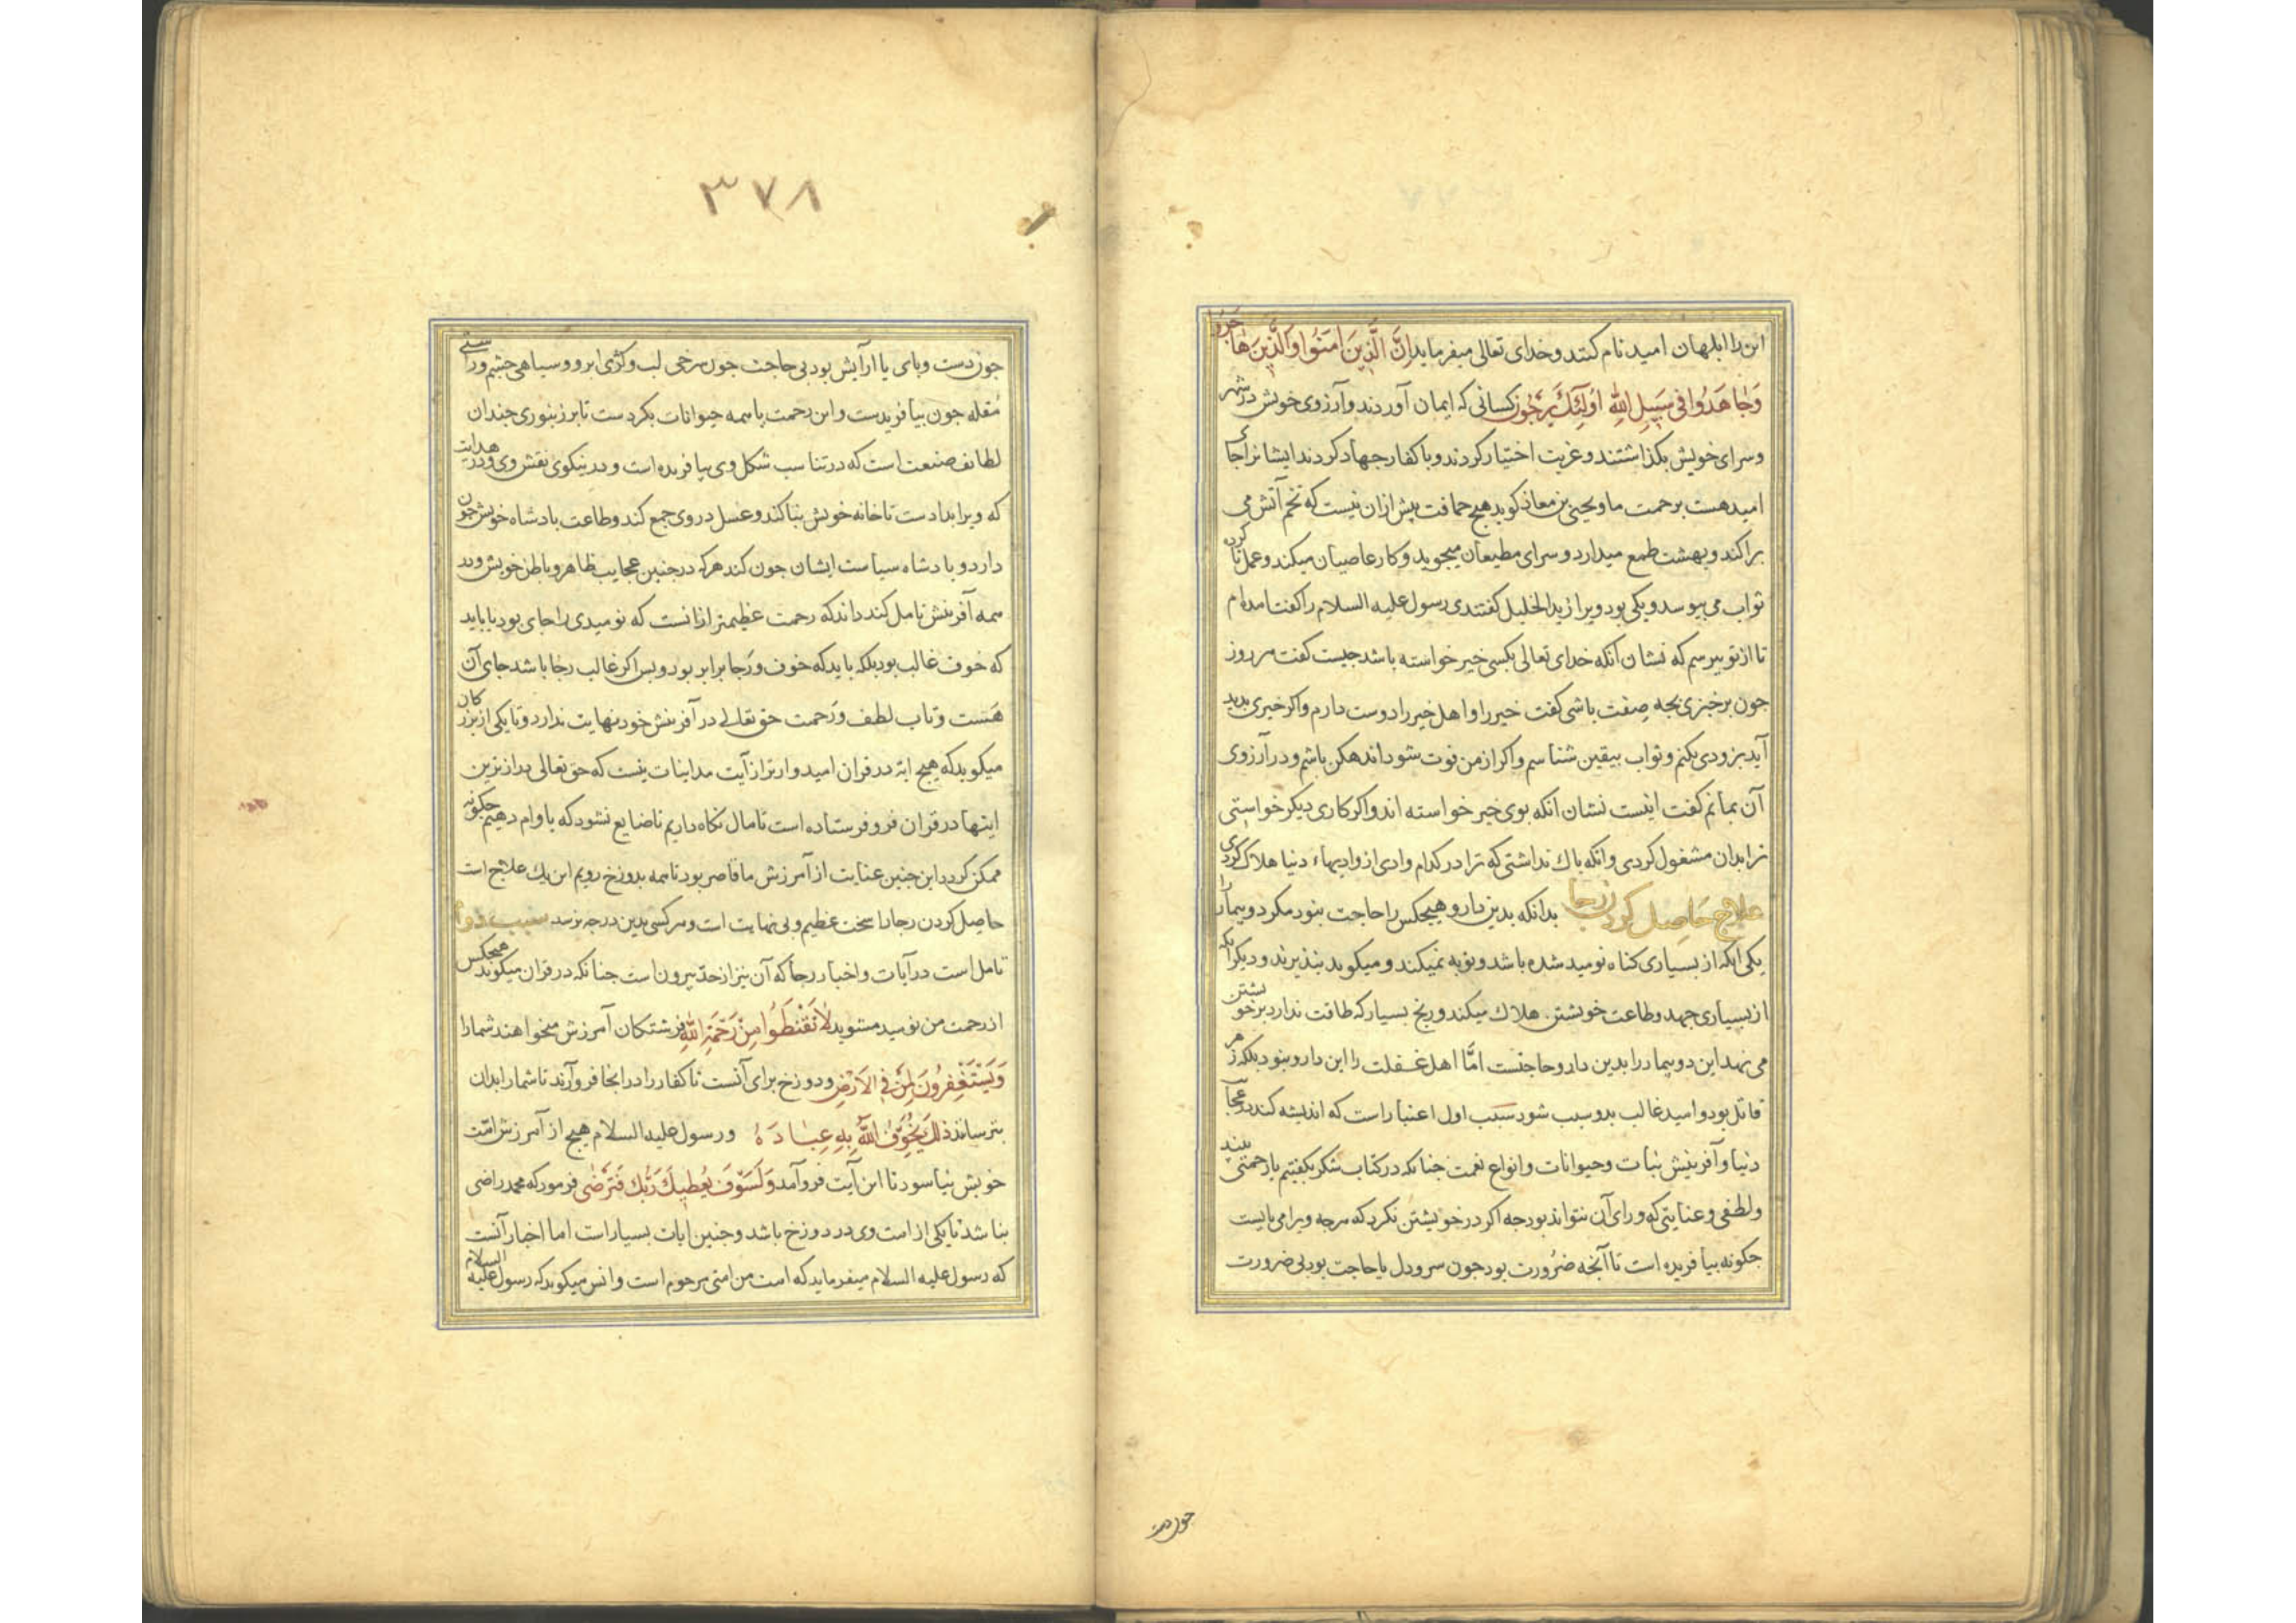 این را ابلهان امید نام کنند و خدای تعالی میفرماید اِنَّ الَّذِینَ اٰمَنُوا وَالَّذِینَ هٰاجَرُوا
وَجٰاهَدُوا فی سَبِیلِ اللهِ اُولٰئِكَ یَرْجُونَ کسانی که ایمان آوردند و آرزوی خویش در شهر
و سرای خویش بگذاشتند و غربت اختیار کردند و با کفار جهاد کردند ایشانرا جای
امید هست برحمت ما و یحیی بن معاذ کوید هیچ حماقت بیش ازان نیست که تخم آتش می
پراکند و بهشت طمع میدارد و سرای مطیعان میجوید و کار عاصیان میکند و عمل ناکرده
ثواب می بیوسد و یکی بود ویرا زید الخلیل کفتندی رسول علیه السلام را کفت آمده‌ام
تا از تو بپرسم که نشان آنکه خدای تعالی بکسی خیر خواسته باشد چیست کفت هر روز
چون برخیزی بچه صِفت باشی کفت خیر را و اهل خیر را دوست دارم و اکر خیری پدید
آید بزودی بکنم و ثواب بیقین شناسم و اکر از من فوت شود اندهکن باشم و در آرزوی
آن بمانم کفت اینست نشان انکه بوی خیر خواسته اند و اکر کاری دیکر خواستی
ترا بدان مشغول کردی و انکه باك نداشتی که ترا در کدام وادی از وادیهاء دنیا هلاك کردی
علاج حاصل کردن رجا بدانکه بدین دارو هیچکس را حاجت نبود مکر دو بیمار را
یکی انکه از بسیاری کناه نومید شده باشد و توبه نمیکند و میکوید نپذیرند و دیکر آنکه
از بسیاری جهد و طاعت خویشتن هلاك میکند و رنج بسیار که طاقت ندارد بر خویشتن
می نهد این دو بیمار را بدین دارو حاجتست امّا اهل غفلت را این دارو نبود بلکه زهر
قاتل بود و امید غالب بدو سبب شود سبب اول اعتبار است که اندیشه کند در عجایب
دنیا و آفرینش نبات و حیوانات و انواع نعمت چنانکه در کتاب شکر بکفتیم تا رحمتی بیند
و لطفی و عنایتی که ورای آن نتواند بود چه اکر در خویشتن نکرد که هرچه ویرا می بایست
چکونه بیافریده است تا آنچه ضرورت بود چون سر و دل یا حاجت بود بی ضرورت
چون دست
۳۷۸
چون دست و پای یا آرایش بود بی حاجت چون سرخی لب و کژی ابرو و سیاهی چشم و راستی
مقله چون بیافریدست و این رحمت با همه حیوانات بکردست تا بر زنبوری چندان
لطایف صنعت است که در تناسب شکل وی بیافریده است و در نیکوی نقش وی و در هدایت
که ویرا بدادست تا خانه خویش بنا کند و عسل در وی جمع کند و طاعت پادشاه خویش چون
دارد و پادشاه سیاست ایشان چون کند هرکه در چنین عجایب ظاهر و باطن خویش و در
همه آفرینش تامل کند داند که رحمت عظیمتر ازانست که نومیدی را جای بود یا باید
که خوف غالب بود بلکه باید که خوف و رجا برابر بود و پس اکر غالب رجا باشد جای آن
هست و تاب لطف و رحمت حق تعالی در آفرینش خود نهایت ندارد و تا یکی از بزرکان
میکوید که هیچ ایة در قران امیدوارتر از آیت مداینات نیست که حق تعالی درازترین
ایتها در قران فرو فرستاده است تا مال نکاه داریم تا ضایع نشود که باوام دهیم چکونه
ممکن کردد این چنین عنایت از آمرزش ما قاصر بود تا همه بدوزخ رویم این یك علاج است
حاصل کردن رجا را سخت عظیم و بی نهایت است و هرکسی بدین درجه نرسد سبب دوم
تامل است در آیات و اخبار رجا که آن نیز از حدّ بیرون است چنانکه در قران میکوید هیچکس
از رحمت من نومید مشوید لاٰ تَقْنَطُوا مِنْ رَحْمَةِ اللهِ فرشتکان آمرزش میخواهند شما را
وَیَسْتَغْفِرُونَ لِمَنْ فِی الاَرْضِ و دوزخ برای آنست تا کفار را در انجا فرو آرند تا شما را بدان
بترساند ذٰلِكَ یُخَوِّفُ اللهُ بِهِ عِبٰادَهُ و رسول علیه السلام هیچ از آمرزش امّت
خویش نیاسود تا این آیت فرو آمد وَلَسَوْفَ یُعْطِیكَ رَبُّكَ فَتَرْضٰی فرمود که محمد راضی
نباشد تا یکی از امت وی در دوزخ باشد و چنین ایات بسیار است اما اخبار آنست
که رسول علیه السلام میفرماید که امت من امتی مرحوم است و انس میکوید که رسول علیه السلام